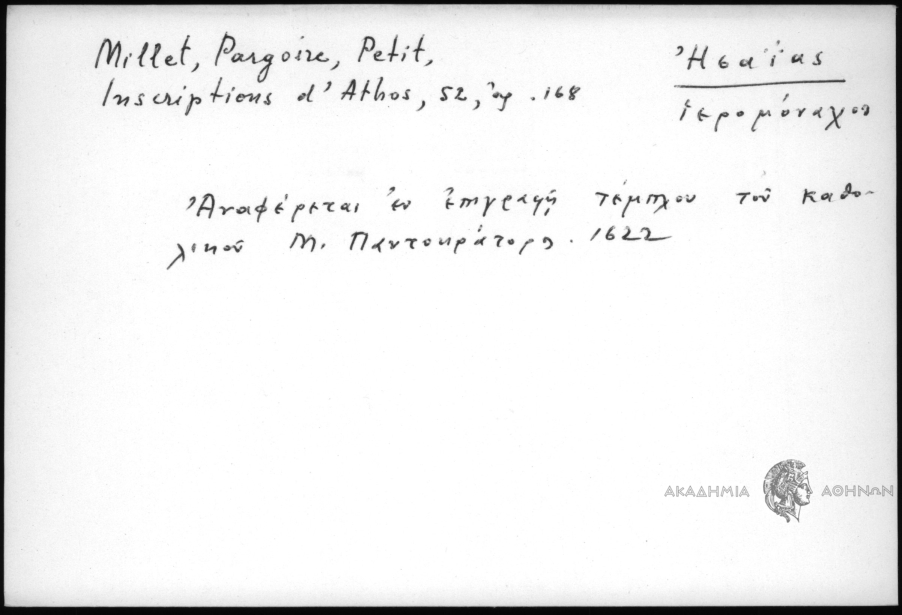 Millet, Pargoire, Petit,
Inscriptions d'Athos, 52, ἀρ. 168
Ἠσαΐας
ἱερομόναχος
Ἀναφέρεται ἐν ἐπιγραφῇ τέμπλου τοῦ καθο-
λικοῦ Μ. Παντοκράτορος. 1622
ΑΚΑΔΗΜΙΑ ΑΘΗΝΩΝ